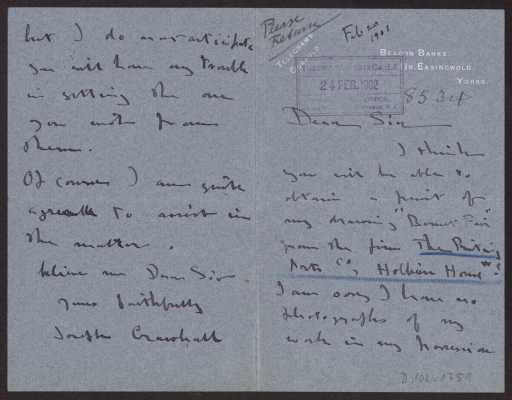 Please
Return
Feb. 20
1902
TELEGRAMS
BEACON BANKS.
NR. EASINGWOLD.
YORKS.
24 FEB. 1902
8534
Dear Sir
I think
you will be able to
obtain a print of
my drawing
from the firm The Printing
Arts Co, Holborn
I am sorry I have no
photographs of my
work in my possession
but I do not anticipate
you will have any trouble
in getting the one
you want from
them.
Of course I am quite
agreeable to assist in
the matter.
believe me Dear Sir
yours faithfully
Joseph Crawhall